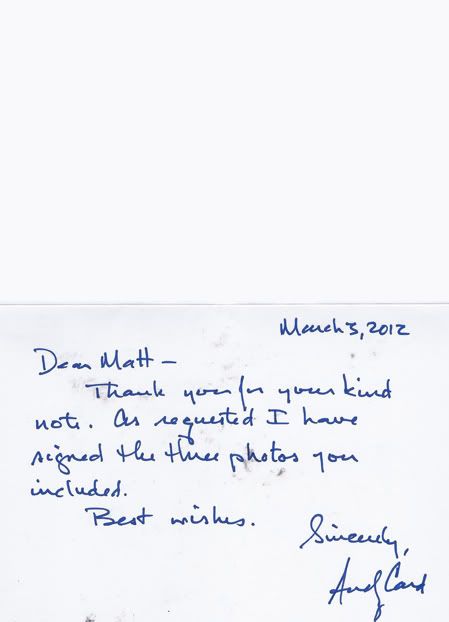 March 3, 2012
Dear Matt –
Thank you for your kind
note. As requested I have
signed the three photos you
included.
Best wishes.
Sincerely,
Andy Card